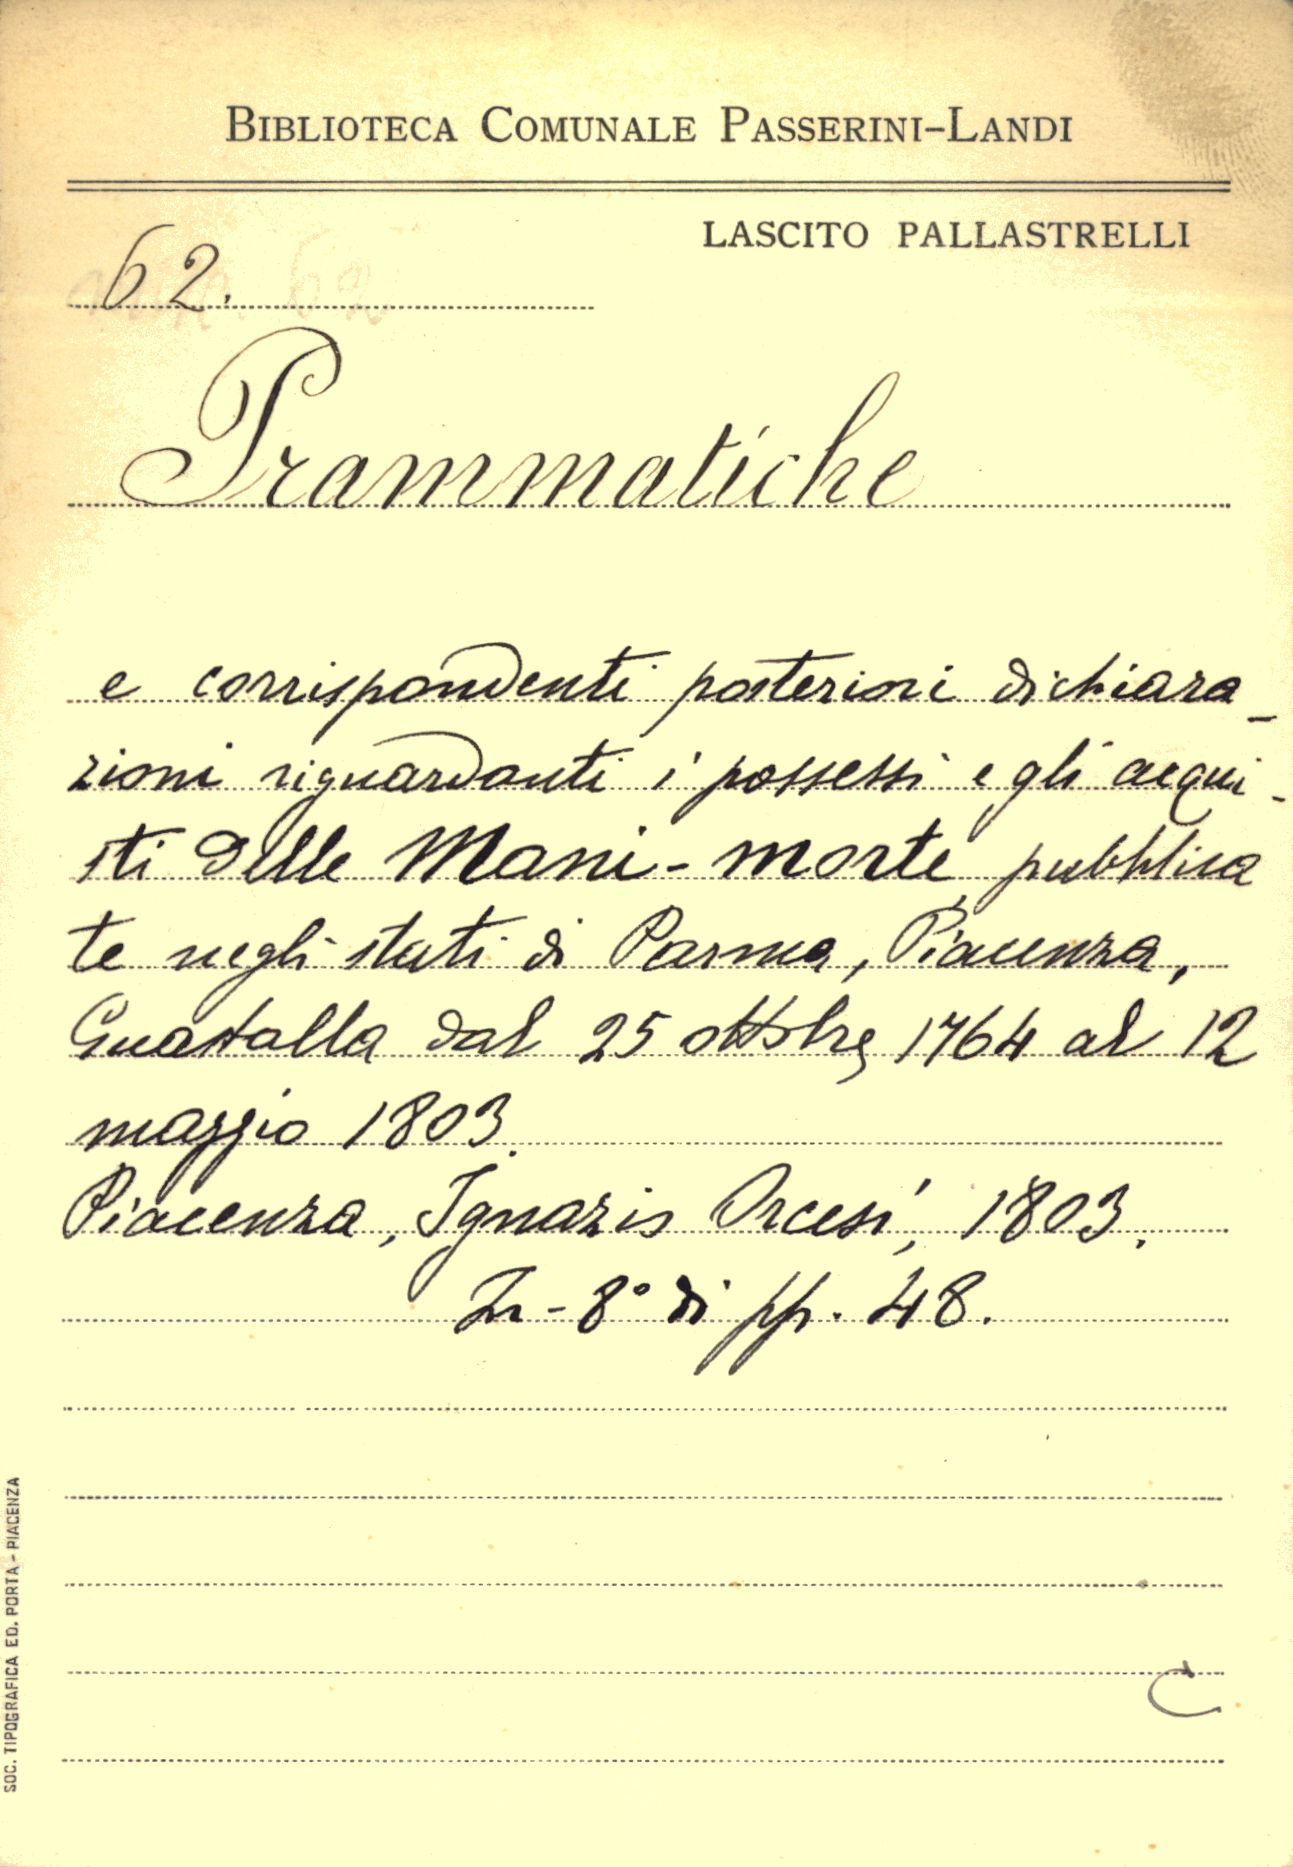 BIBLIOTECA COMUNALE PASSERINI-LANDI
LASCITO PALLASTRELLI
62.
Prammatiche
e corrispondenti posteriori dichiara-
zioni riguardanti i possessi e gli acqui-
sti delle Mani-morte, pubblica
te negli stati di Parma, Piacenza,
Guastalla dal 25 ottobre 1764 al 12
maggio 1803.
Piacenza, Ignazio Orcesi, 1803.
In-8° di pp. 48.
C
SOC. TIPOGRAFICA ED. PORTA - PIACENZA